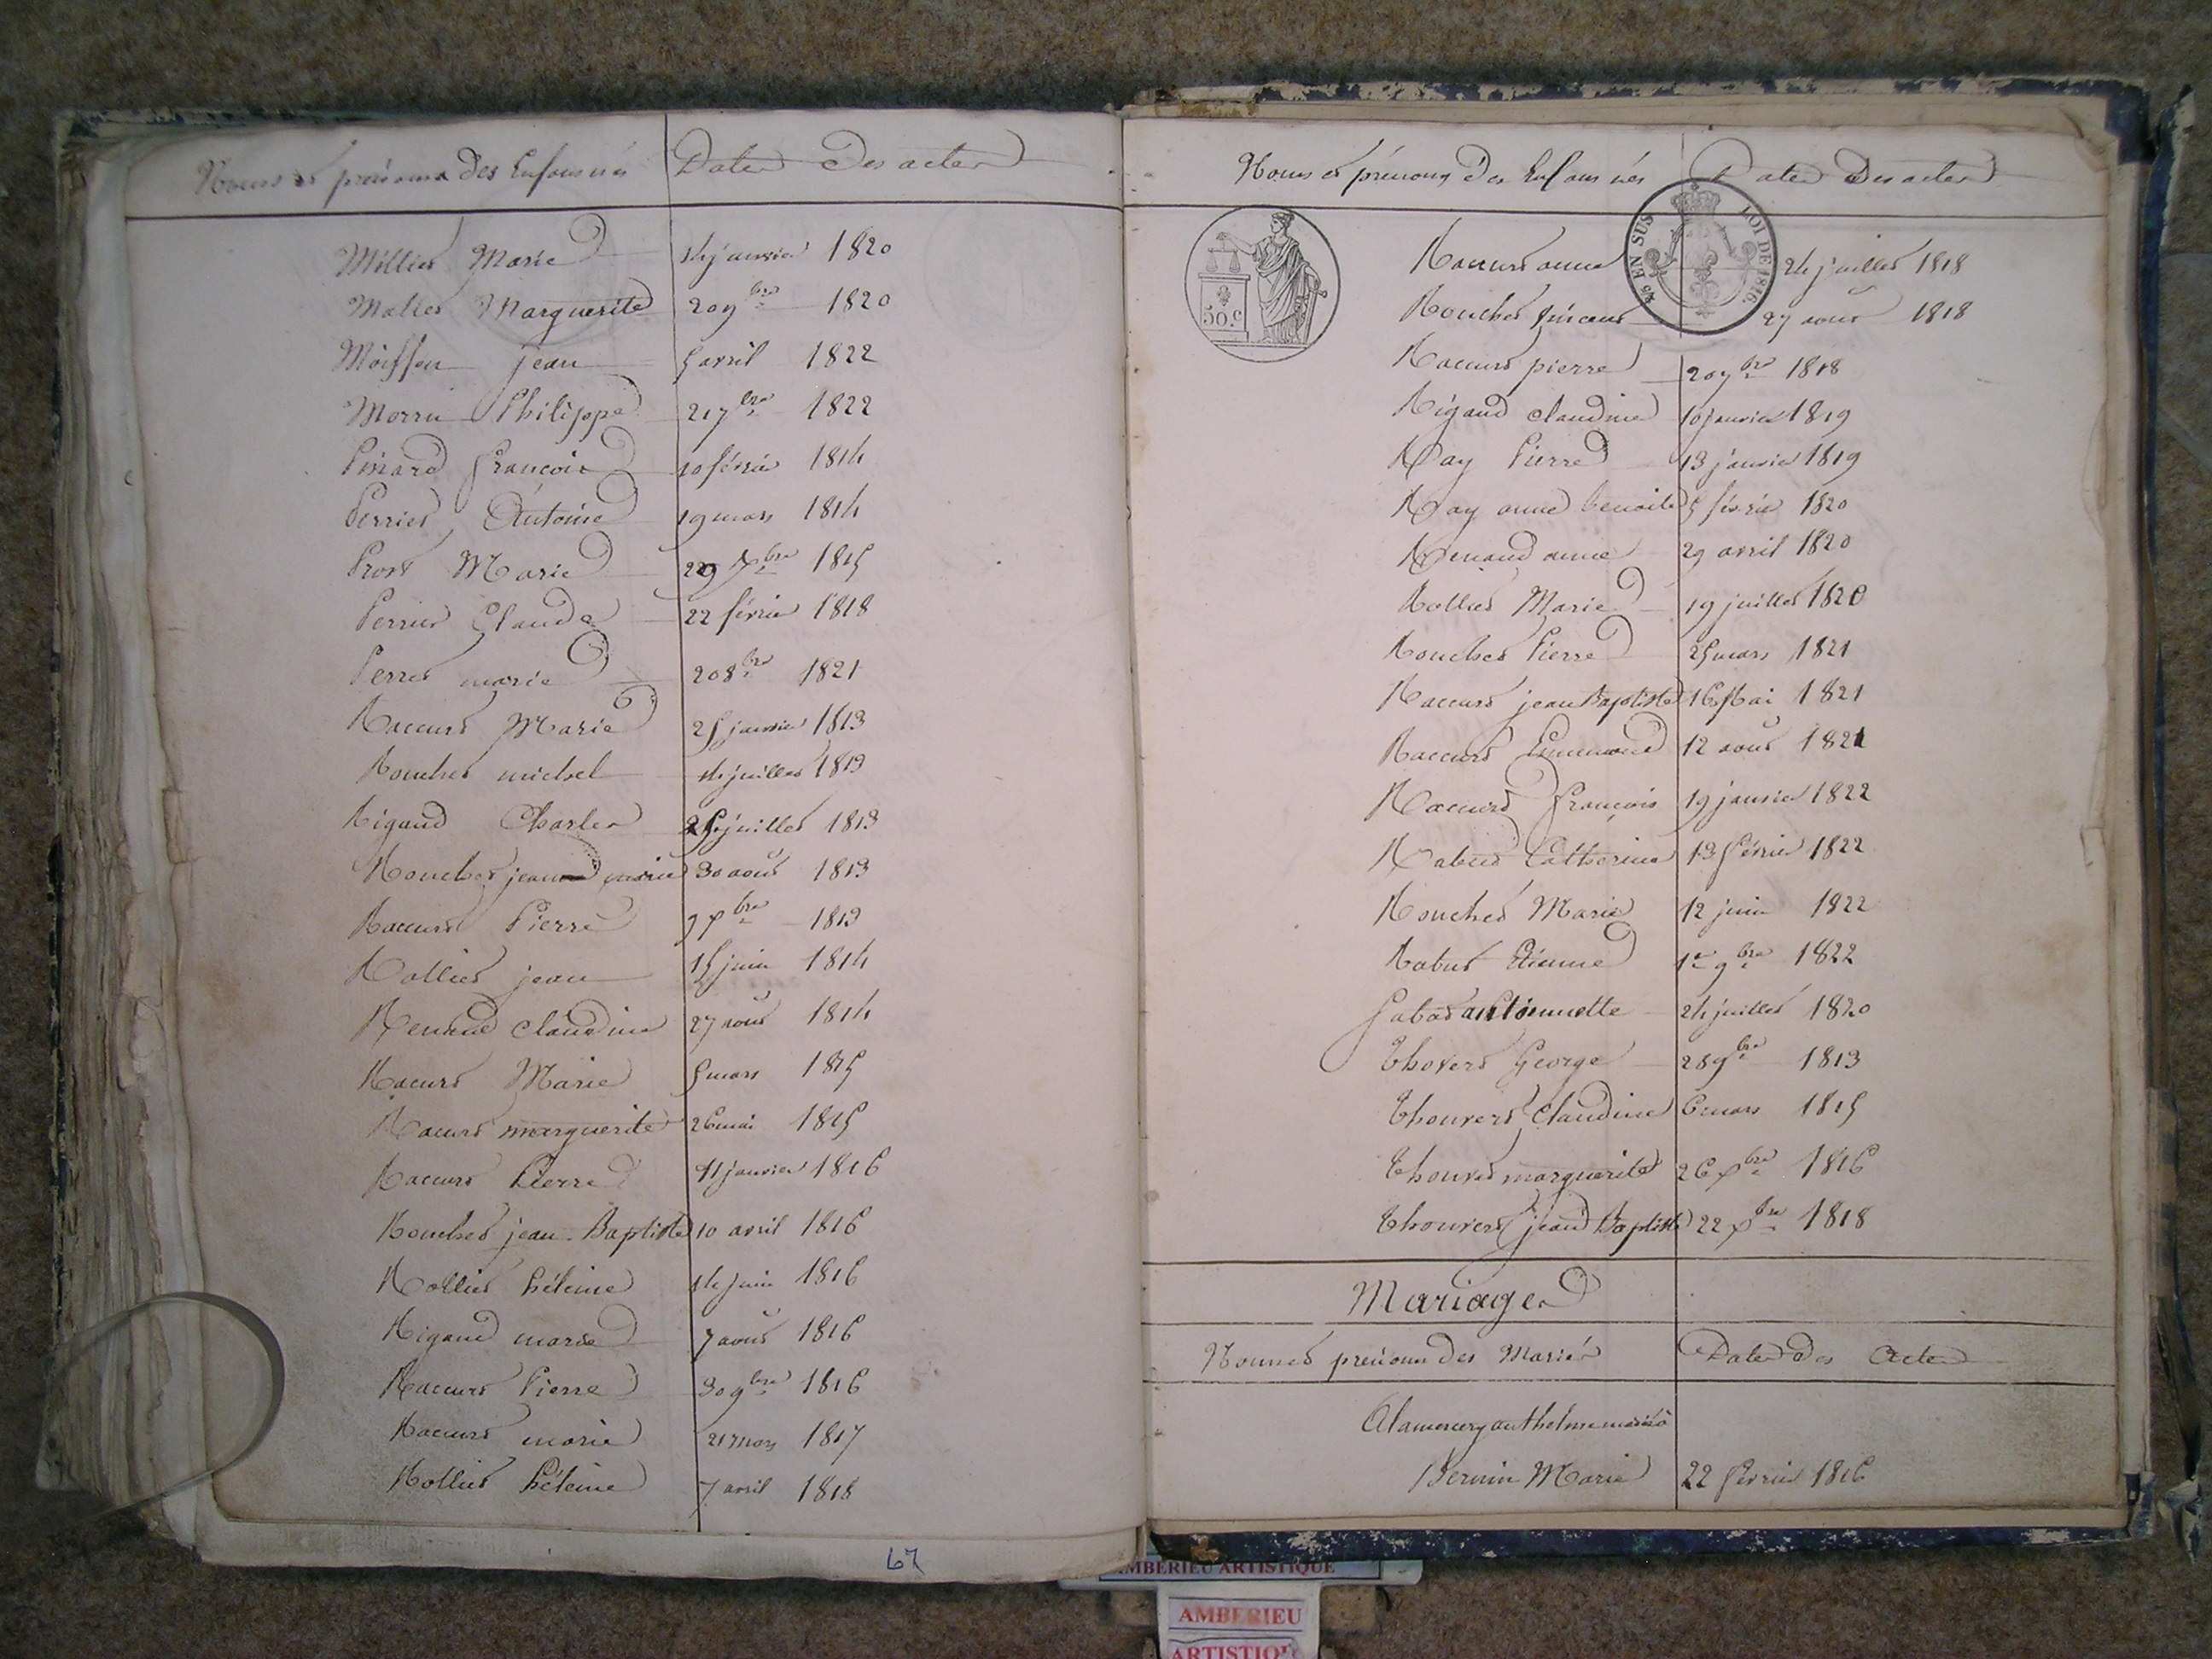 Noms et prénoms des Enfans nés Dates des actes
Millier Marie 14 janvier 1820
Mollet Marguerite 20 9bre 1820
Moiffon jean 5 avril 1822
Morrin Philippe 21 7bre 1822
Pinard françois 10 février 1814
Perrier Antoine 19 mars 1814
Prost Marie 29 Xbre 1815
Perrier Claude 22 février 1818
Perret marie 20 8bre 1821
Raccurt Marie 25 janvier 1813
Rouchet michel 14 juillet 1813
Rigaud Charles juillet 1813
Rouchet jean marie 30 aout 1813
Raccurt Pierre 9 Xbre 1813
Rollier jean 15 juin 1814
Renaud claudine 27 aout 1814
Raccurt Marie 5 mars 1815
Raccurt marguerite 26 mai 1815
Raccurt Pierre 11 janvier 1816
Rouchet jean-Baptiste 10 avril 1816
Rollier héleine 14 juin 1816
Rigaud marie 7 aout 1816
Raccurt Pierre 30 9bre 1816
Raccurt marie 21 mars 1817
Rollier héleine 7 avril 1818
67
Noms et prénoms des Enfans nés Dates des actes
50.c
EN SUS LOI DE 1816.
Raccurt anne 24 juillet 1818
Rouchet vincent 27 aout 1818
Raccurt pierre 20 7bre 1818
Rigaud claudine 10 janvier 1819
Ray Pierre 13 janvier 1819
Ray anne benoite 5 février 1820
Renaud anne 29 avril 1820
Rollier Marie 19 juillet 1820
Rouchet Pierre 25 mars 1821
Raccurt jean Baptiste 16 Mai 1821
Raccurt 12 aout 1821
Raccurt françois 19 janvier 1822
Rabut Catherine 13 février 1822
Rouchet Marie 12 juin 1822
Rabut Etienne 1er 9bre 1822
Sabot antoinette 24 juillet 1820
Thovert George 28 9bre 1813
Thouvert Claudine 6 mars 1815
Thouvert marguerite 26 Xbre 1816
Thouvert jean Baptiste 22 Xbre 1818
Mariages
Noms et prénoms des Mariés Dates des Actes
Alamercery anthelme marié à
Bernin Marie 22 février 1816
AMBERIEU ARTISTIQUE
AMBERIEU
ARTISTIQUE